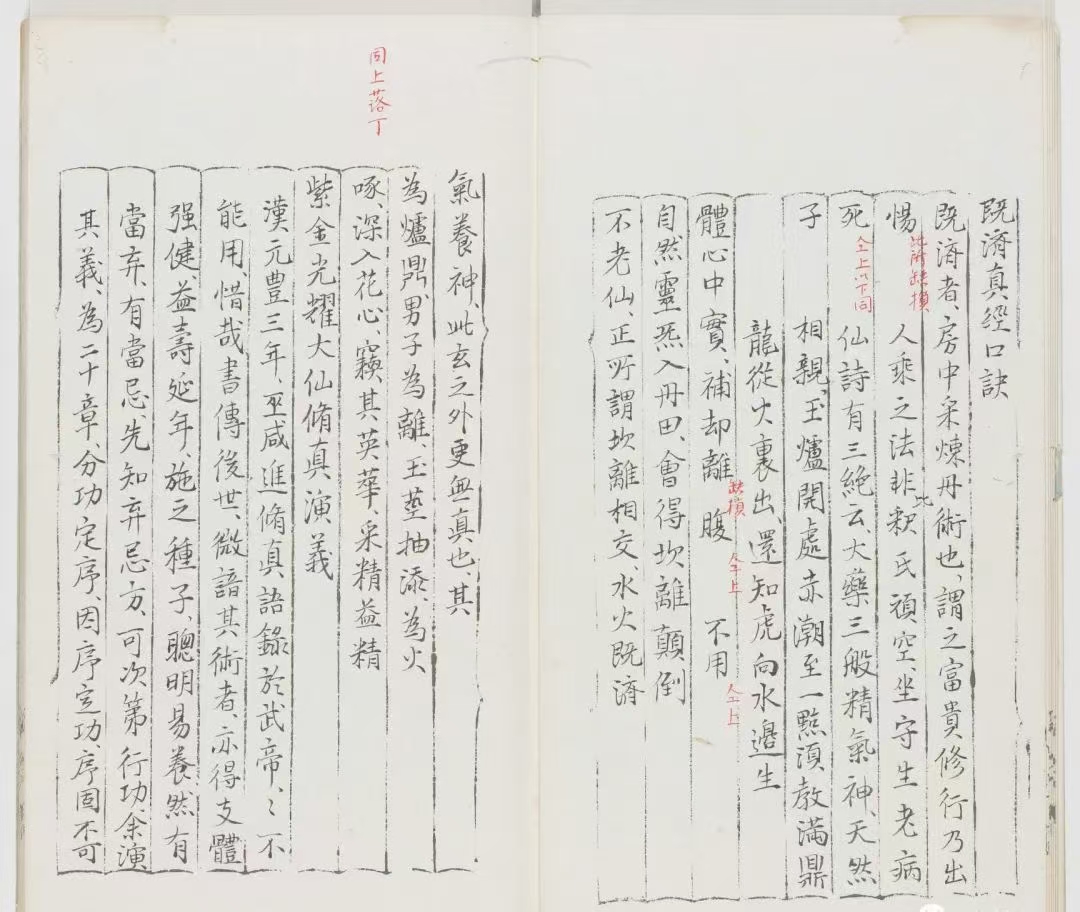 既濟真經口訣
既濟者、房中采煉丹術也、謂之富貴修行乃出
惕
此所缺損
人乘之法非釈氏頑空、坐守生老病
比
死
仝上以下同
仙詩有三絕云、大藥三般精氣神、天然
子
相親、玉爐開處赤潮至一點須教滿鼎
龍從火裏出、還知虎向水邊生
體心中實、補却離
缺損
腹
仝上
不用
仝上
自然靈炁入丹田、會得坎離顛倒
不老仙、正所謂坎離相交、水火既濟
同上落丁
氣養神、此玄之外更無真也、其
為爐鼎男子為離、玉莖抽添、為火
啄、深入花心、竅其英華、采精益精
紫金光耀大仙脩真演義
漢元豊三年、巫咸進脩真語錄於武帝、〻不
能用、惜哉書傳後世、微諳其術者、亦得支體
强健、益壽延年、施之種子、聰明易養、然有
當弃、有當忌、先知弃忌方、可次第行功、余演
其義、為二十章、分功定序、因序定功、序固不可